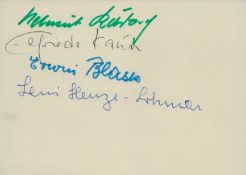 Helmut
Elfriede Kaun
Erwin Blask
Leni Henze-Lohmar